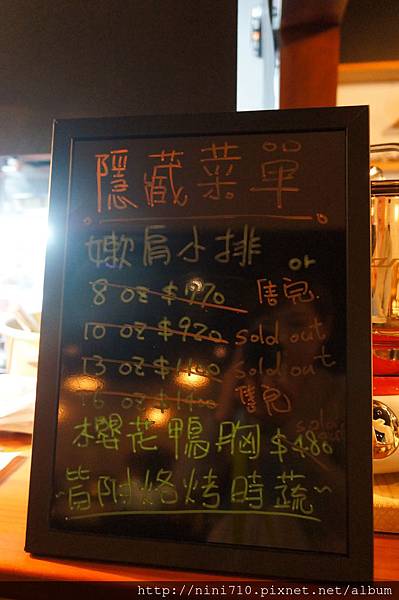 隱藏菜單
嫩肩小排 or
8 oz 售完
10 oz $920 sold out
13 oz $1100 sold out
16 oz $1400 售完
櫻花鴨胸 $480 sold out
~皆附烙烤時蔬~
http://nini710.pixnet.net/album